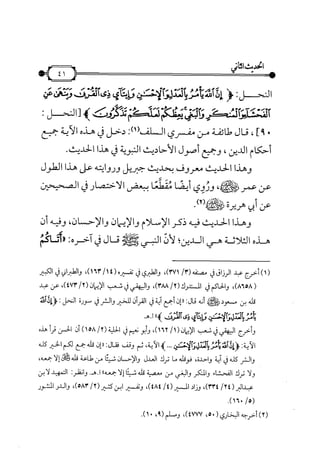 الحديث الثاني
٤١
النحل: ﴿ إِنَّ اللَّهَ يَأْمُرُ بِالْعَدْلِ وَالْإِحْسَٰنِ وَإِيتَآيِٕ ذِى الْقُرْبَىٰ وَيَنْهَىٰ عَنِ
الْفَحْشَآءِ وَالْمُنكَرِ وَالْبَغْىِ يَعِظُكُمْ لَعَلَّكُمْ تَذَكَّرُونَ ﴾ [النحل:
٩٠]، قال طائفة من مفسري السلف(١): دخل في هذه الآية جميع
أحكام الدين، وجميع أصول الأحاديث النبوية في هذا الحديث.
وهذا الحديث معروف بحديث جبريل وروايته على هذا الطول
عن عمر ﵁، ورُوِي أيضًا مُقَطَّعًا ببعض الاختصار في الصحيحين
عن أبي هريرة ﵁(٢).
وهذا الحديث فيه ذكر الإسلام والإيمان والإحسان، وفيه أن
هذه الثلاثة هي الدين؛ لأنَّ النبي ﷺ قال في آخره: «أَتَاكُمْ
(١) أخرج عبد الرزاق في مصنفه (٣/ ٣٧١)، والطبري في تفسيره (١٤/ ١٦٣)، والطبراني في الكبير
(٨٦٥٨)، والحاكم في المستدرك (٢/ ٣٨٨)، والبيهقي في شعب الإيمان (٢/ ٤٧٣)، عن عبد
الله بن مسعود ﵁ أنه قال: «إن أجمع آية في القرآن للخير والشر في سورة النحل: ﴿إِنَّ اللَّهَ
يَأْمُرُ بِالْعَدْلِ وَالْإِحْسَٰنِ وَإِيتَآيِٕ ذِى الْقُرْبَىٰ ﴾» ا.هـ
وأخرج البيهقي في شعب الإيمان (١/ ١٦٢)، وأبو نعيم في الحلية (٢/ ١٥٨) أن الحسن قرأ هذه
الآية: ﴿ إِنَّ اللَّهَ يَأْمُرُ بِالْعَدْلِ وَالْإِحْسَٰنِ ...﴾ الآية، ثم وقف فقال: «إن الله جمع لكم الخير كله
والشر كله في آية واحدة، فوالله ما ترك العدل والإحسان شيئًا من طاعة الله ﷿ إلا جمعه،
ولا ترك الفحشاء والمنكر والبغي من معصية الله شيئًا إلا جمعه» ا.هـ. وينظر: التمهيد لابن
عبدالبر (٢٤/ ٣٣٤)، وزاد المسير (٤/ ٤٨٤)، وتفسير ابن كثير (٢/ ٥٨٣)، والدر المنثور
(٥/ ١٦٠).
(٢) أخرجه البخاري (٥٠، ٤٧٧٧)، ومسلم (٩، ١٠).